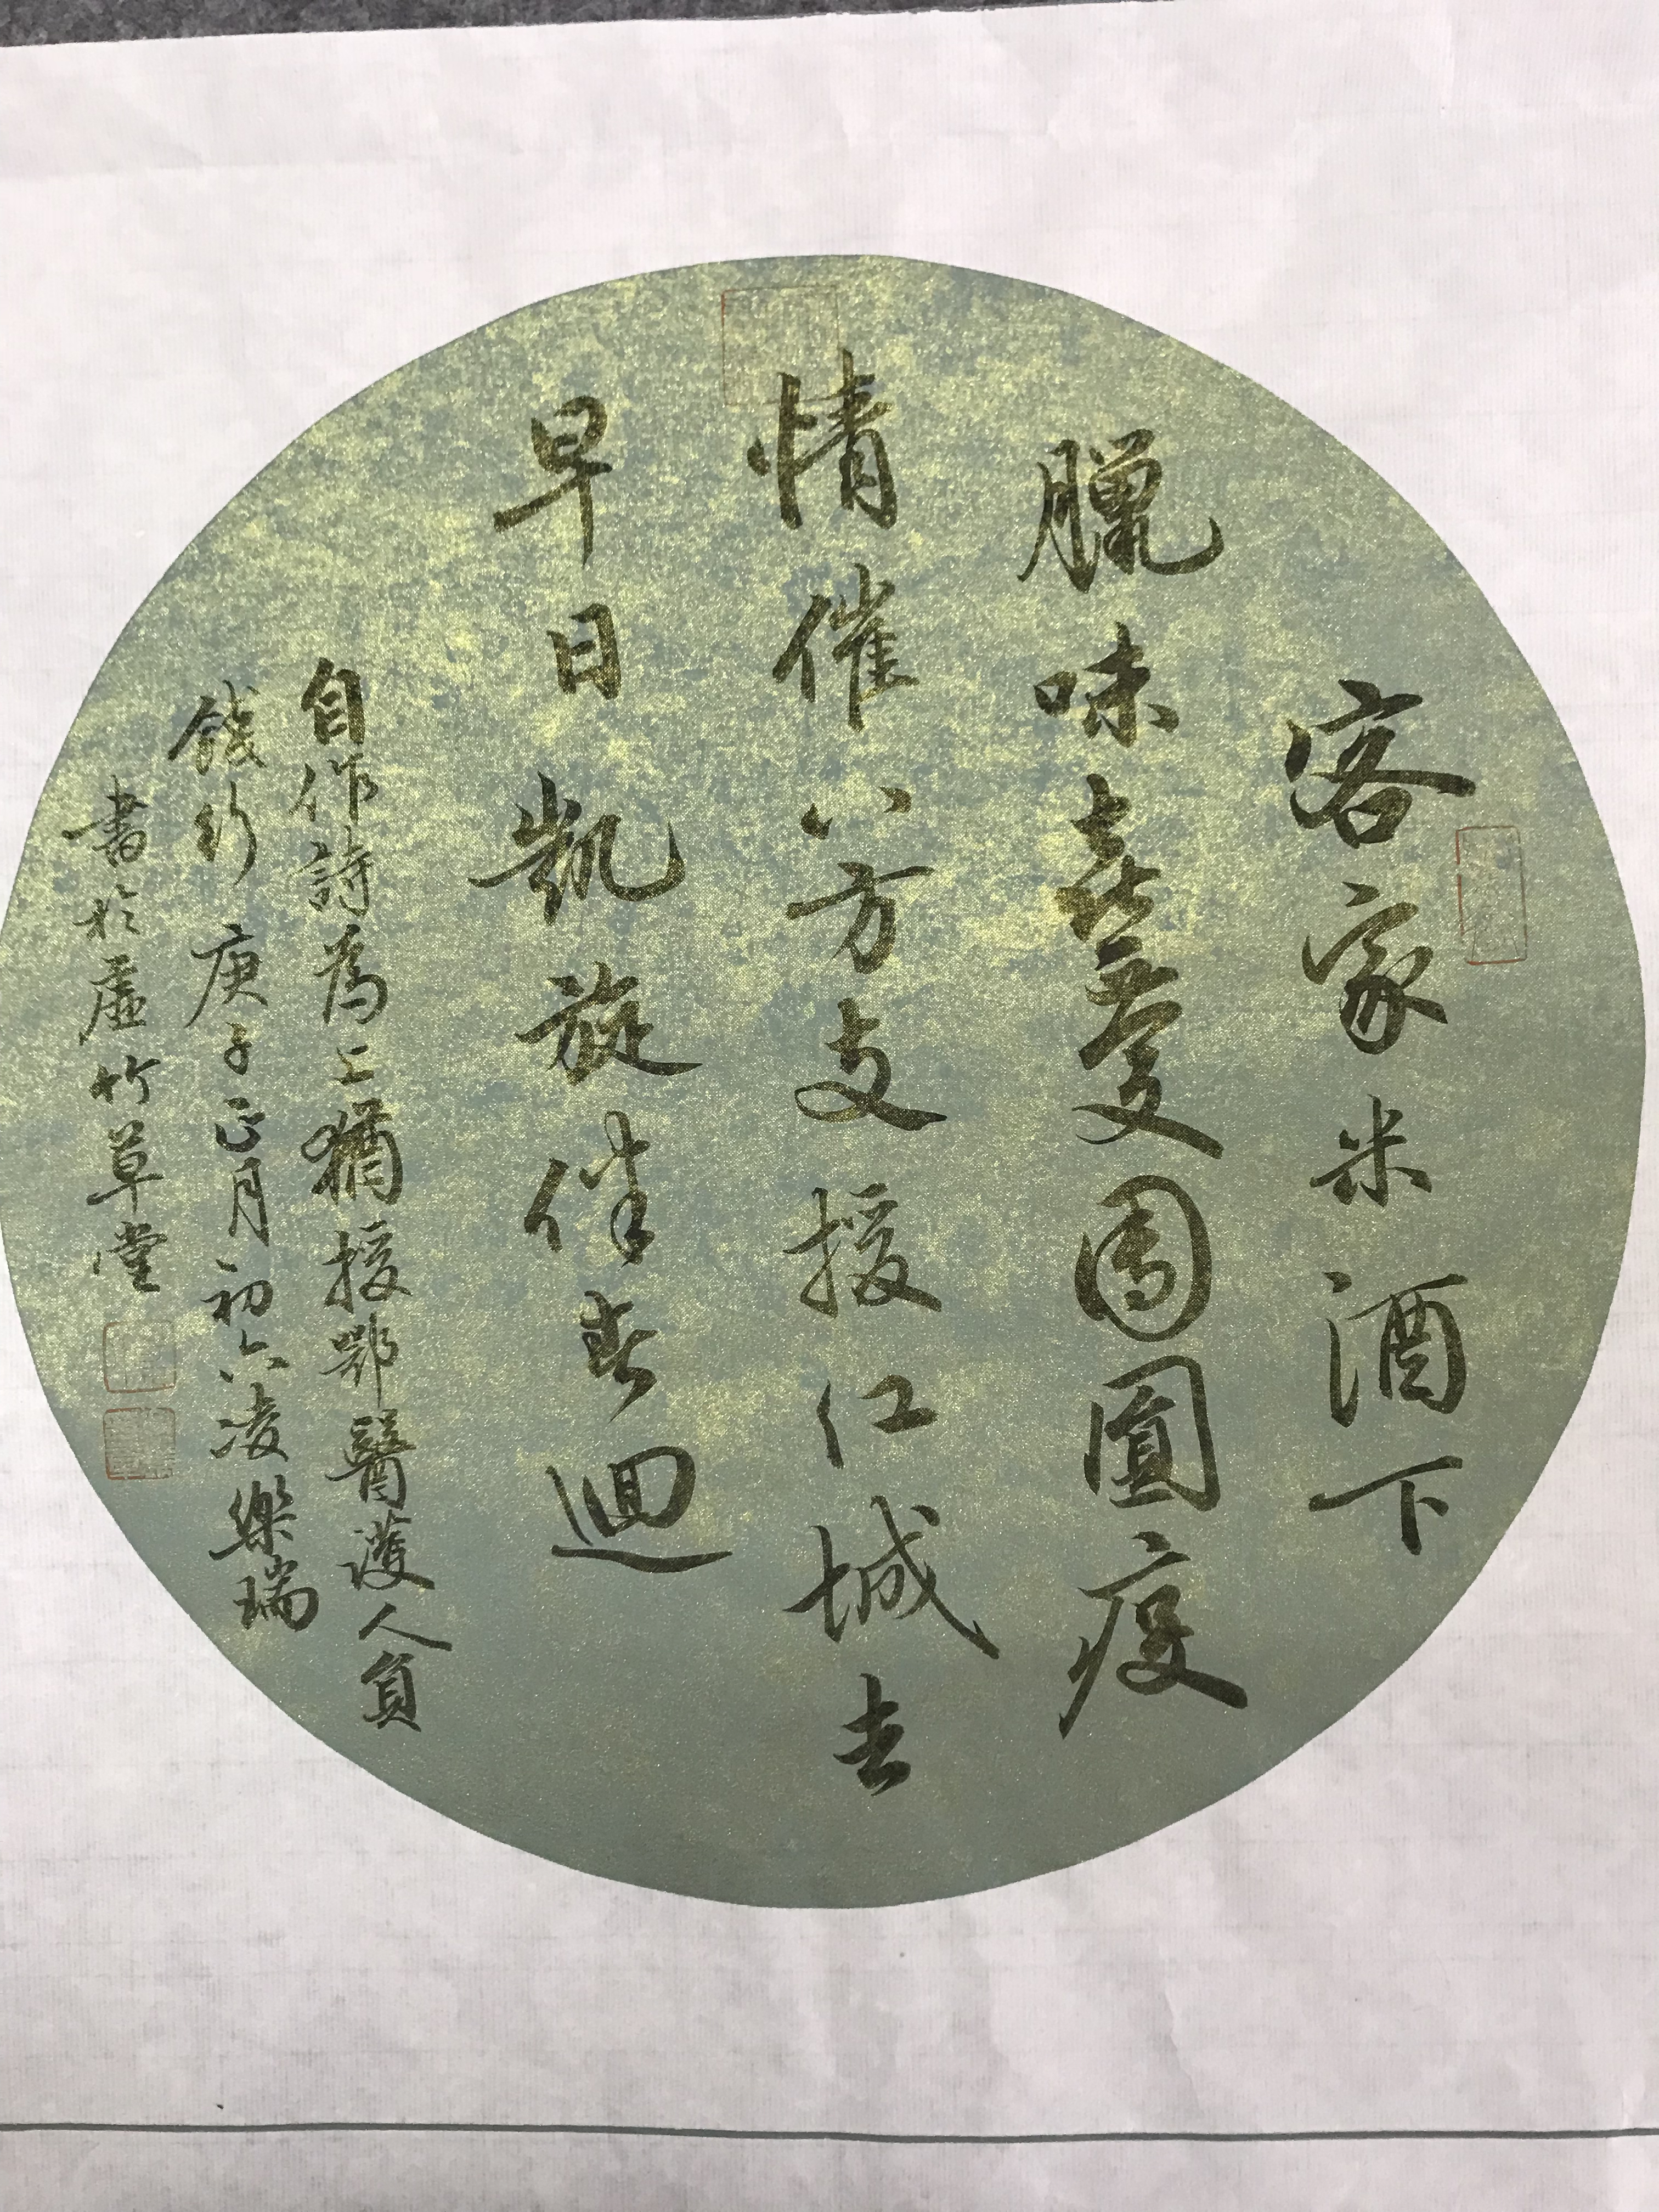 客家米酒下
臘味喜慶團圓疫
情催八方支援江城去
早日凱旋伴春迴
自作詩為上猶援鄂醫護人員
餞行庚子正月初六凌樂瑞
書於虛竹草堂